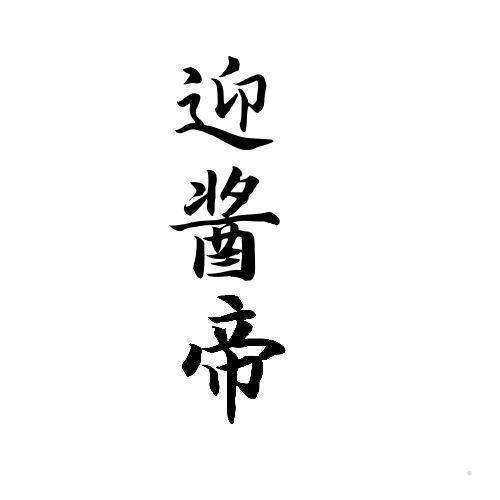 迎酱帝